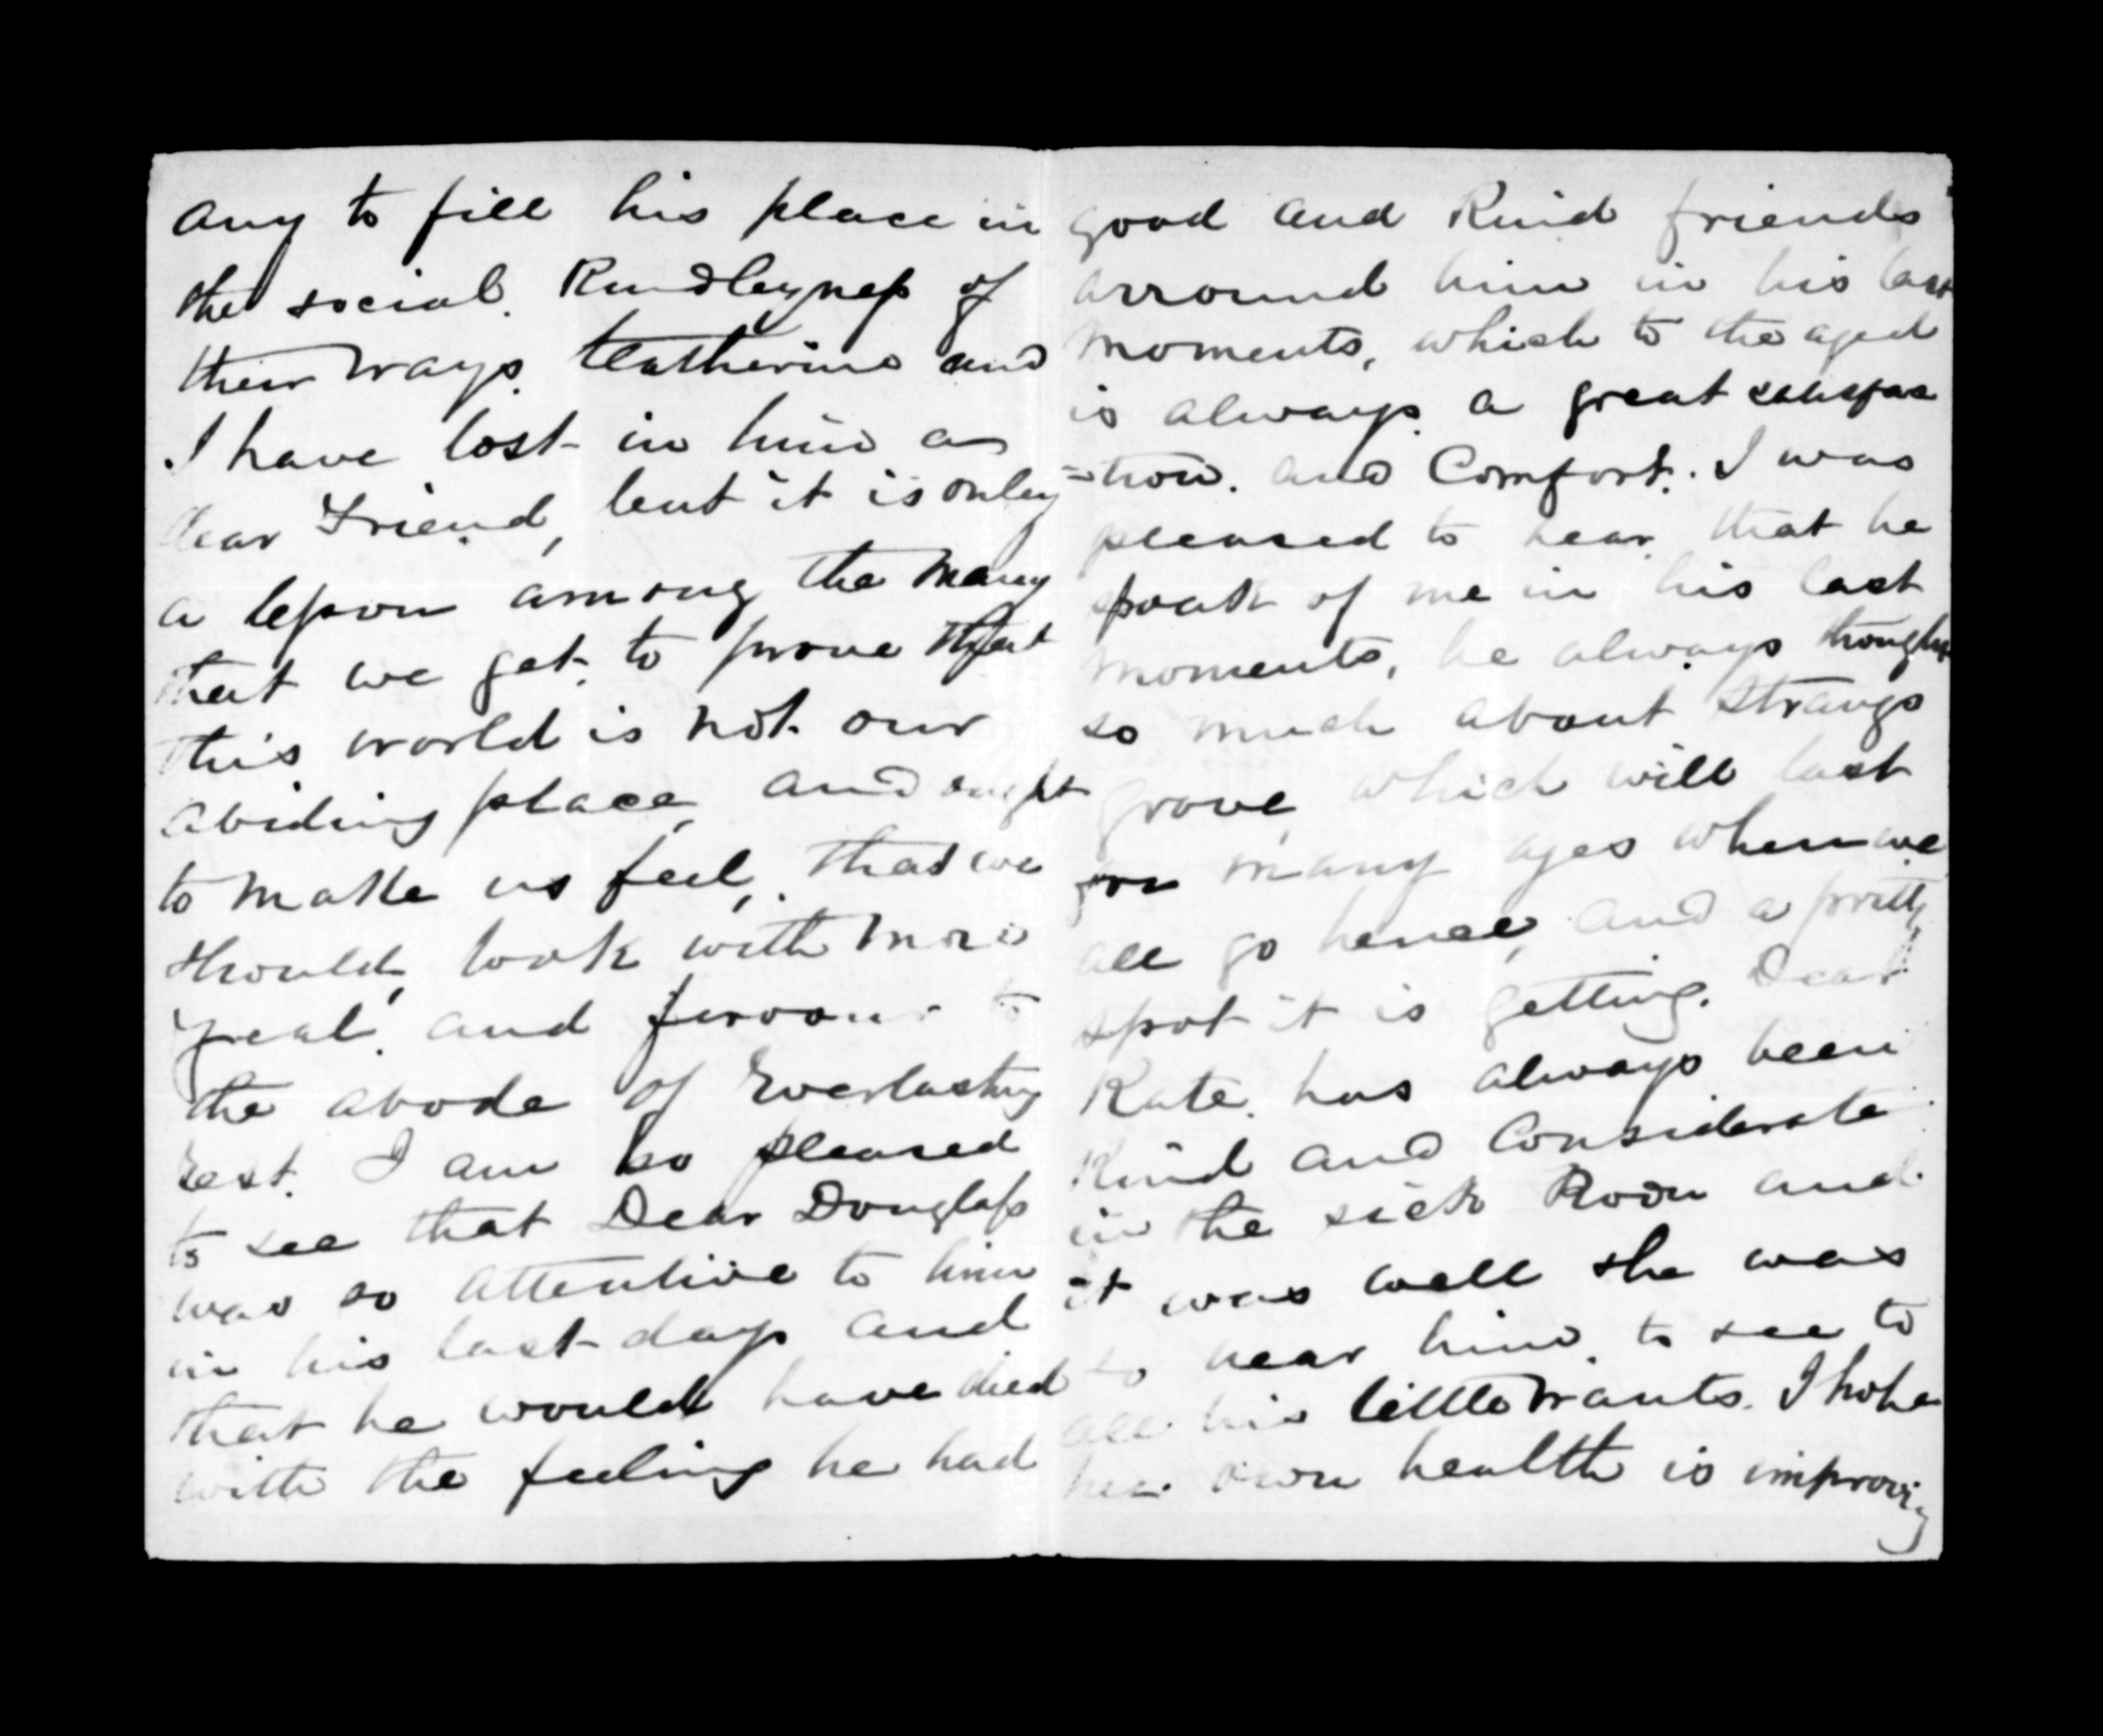 any to fill his place in
the social. Kindleyness of
their ways. Catherine and
I have lost in him a
dear Friend, but it is onley
a lesson among the many
that we get. to prove that
this world is not our
abiding place, and ought
to make us feel, that we
should, look with more
zeal. and fervour to
the abode of Everlasting
rest. I am so pleased
to see that Dear Douglass
was so attentive to him
in his last days and
that he would have died
with the feeling he had
good and Kind friends
arround him in his last
moments, which to the aged
is always a great satisfac
=tion. and Comfort. I was
pleased to hear that he
spoak of me in his last
moments, he always thought
so much about Strangs
grove, which will last
for many ages when we
all go hence, and a pretty
spot it is getting. Dear
Kate. has always been
Kind and Considerate
in the sick Room and
it was well she was
to near him. to see to
all his little wants. I hope
her own health is improvig